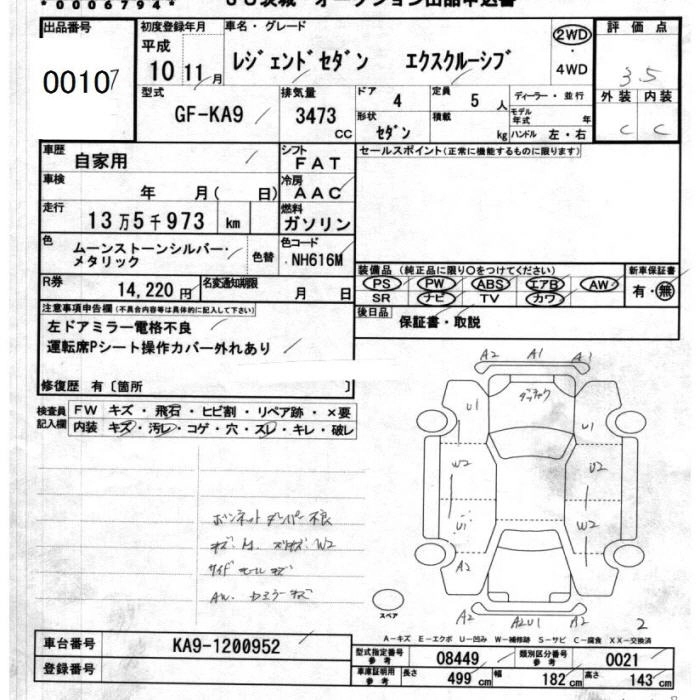 *0006794*
ＪＵ茨城 オークション出品申込書
出品番号
00107
初度登録年月
平成
10 11月
車名・グレード
レジェンドセダン エクスクルーシブ
2WD
・
4WD
評価点
3.5
外装 内装
C C
型式
GF-KA9
排気量
3473
CC
ドア
4
定員
5 人
ディーラー・並行
モデル年式 年
形状
セダン
積載
kg
ハンドル 左・右
車歴
自家用
シフト
FAT
セールスポイント(正常に機能するものに限ります)
車検
年 月( 日)
冷房
AAC
走行
13万5千973 km
燃料
ガソリン
色
ムーンストーンシルバー・
メタリック
色替
色コード
NH616M
R券
14,220円
名変通知期限
月 日
装備品(純正品に限り○をつけてください)
PS PW ABS エアB AW
SR ナビ TV カワ
新車保証書
有・無
後日品
保証書・取説
注意事項申告欄(不具合内容等は具体的に記入して下さい)
左ドアミラー電格不良
運転席Pシート操作カバー外れあり
修復歴 有[箇所 ]
検査員
記入欄
FW キズ・飛石・ヒビ割・リペア跡・×要
内装 キズ・汚レ・コゲ・穴・スレ・キレ・破レ
ボンネットダンパー不良
サイドモールキズ
AW. カミラーキズ
A2 A1 A1
U1 U1
W2 U2
U1 W2
A2
A2 A2U1 A2
2
スペア
A－キズ E－エクボ U－凹み W－補修跡 S－サビ C－腐食 XX－交換済
車台番号
KA9-1200952
登録番号
型式指定番号
参考
08449
類別区分番号
参考
0021
車庫証明用
参考
長さ 499 cm
幅 182 cm
高さ 143 cm